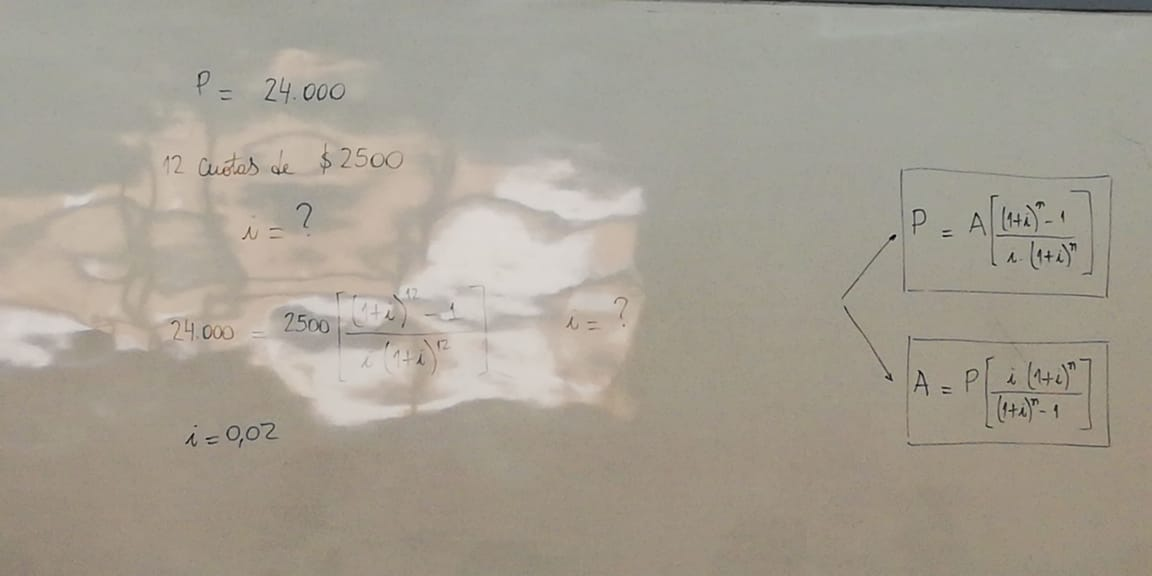 P = 24.000
12 cuotas de $2500
i = ?
24.000 = 2500 [ (1+i)^12 - 1 / i (1+i)^12 ] i = ?
i = 0,02
P = A [ (1+i)^n - 1 / i. (1+i)^n ]
A = P [ i (1+i)^n / (1+i)^n - 1 ]